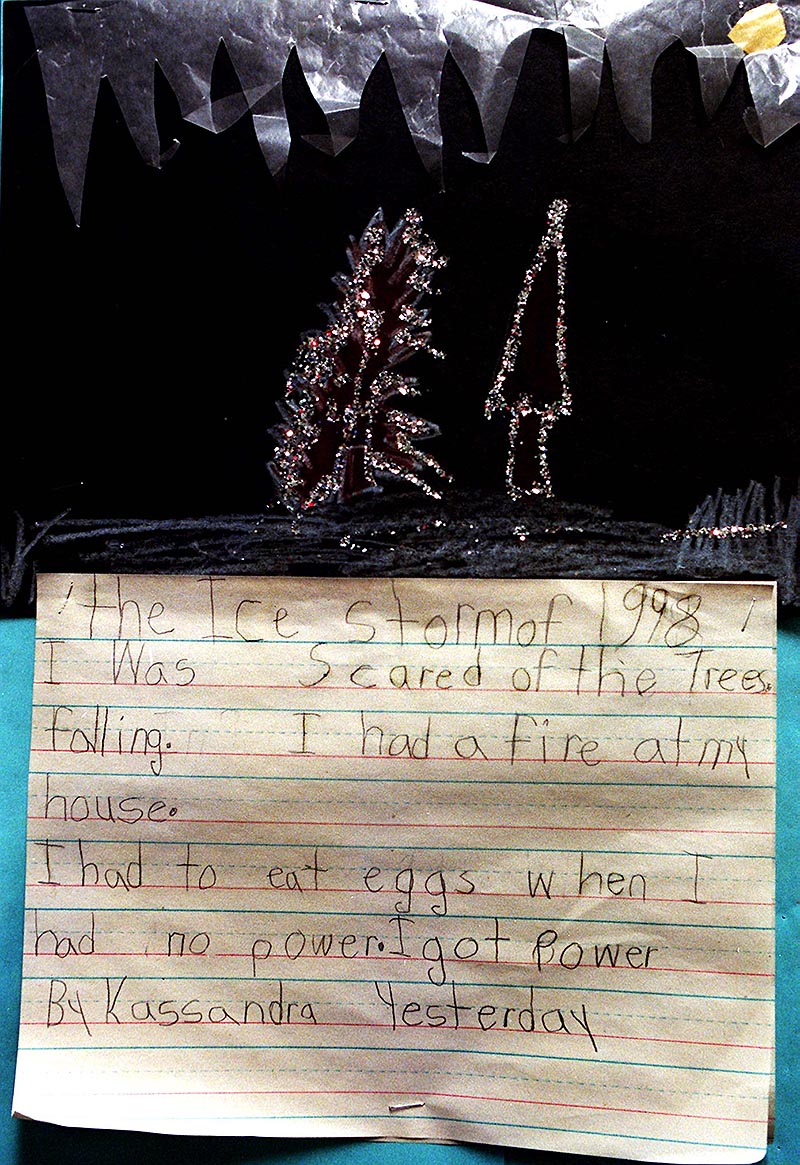 ! the Ice stormof 1998 !
I Was Scared of the Trees
falling. I had a fire at my
house.
I had to eat eggs when I
had no power. I got Power
By Kassandra Yesterday